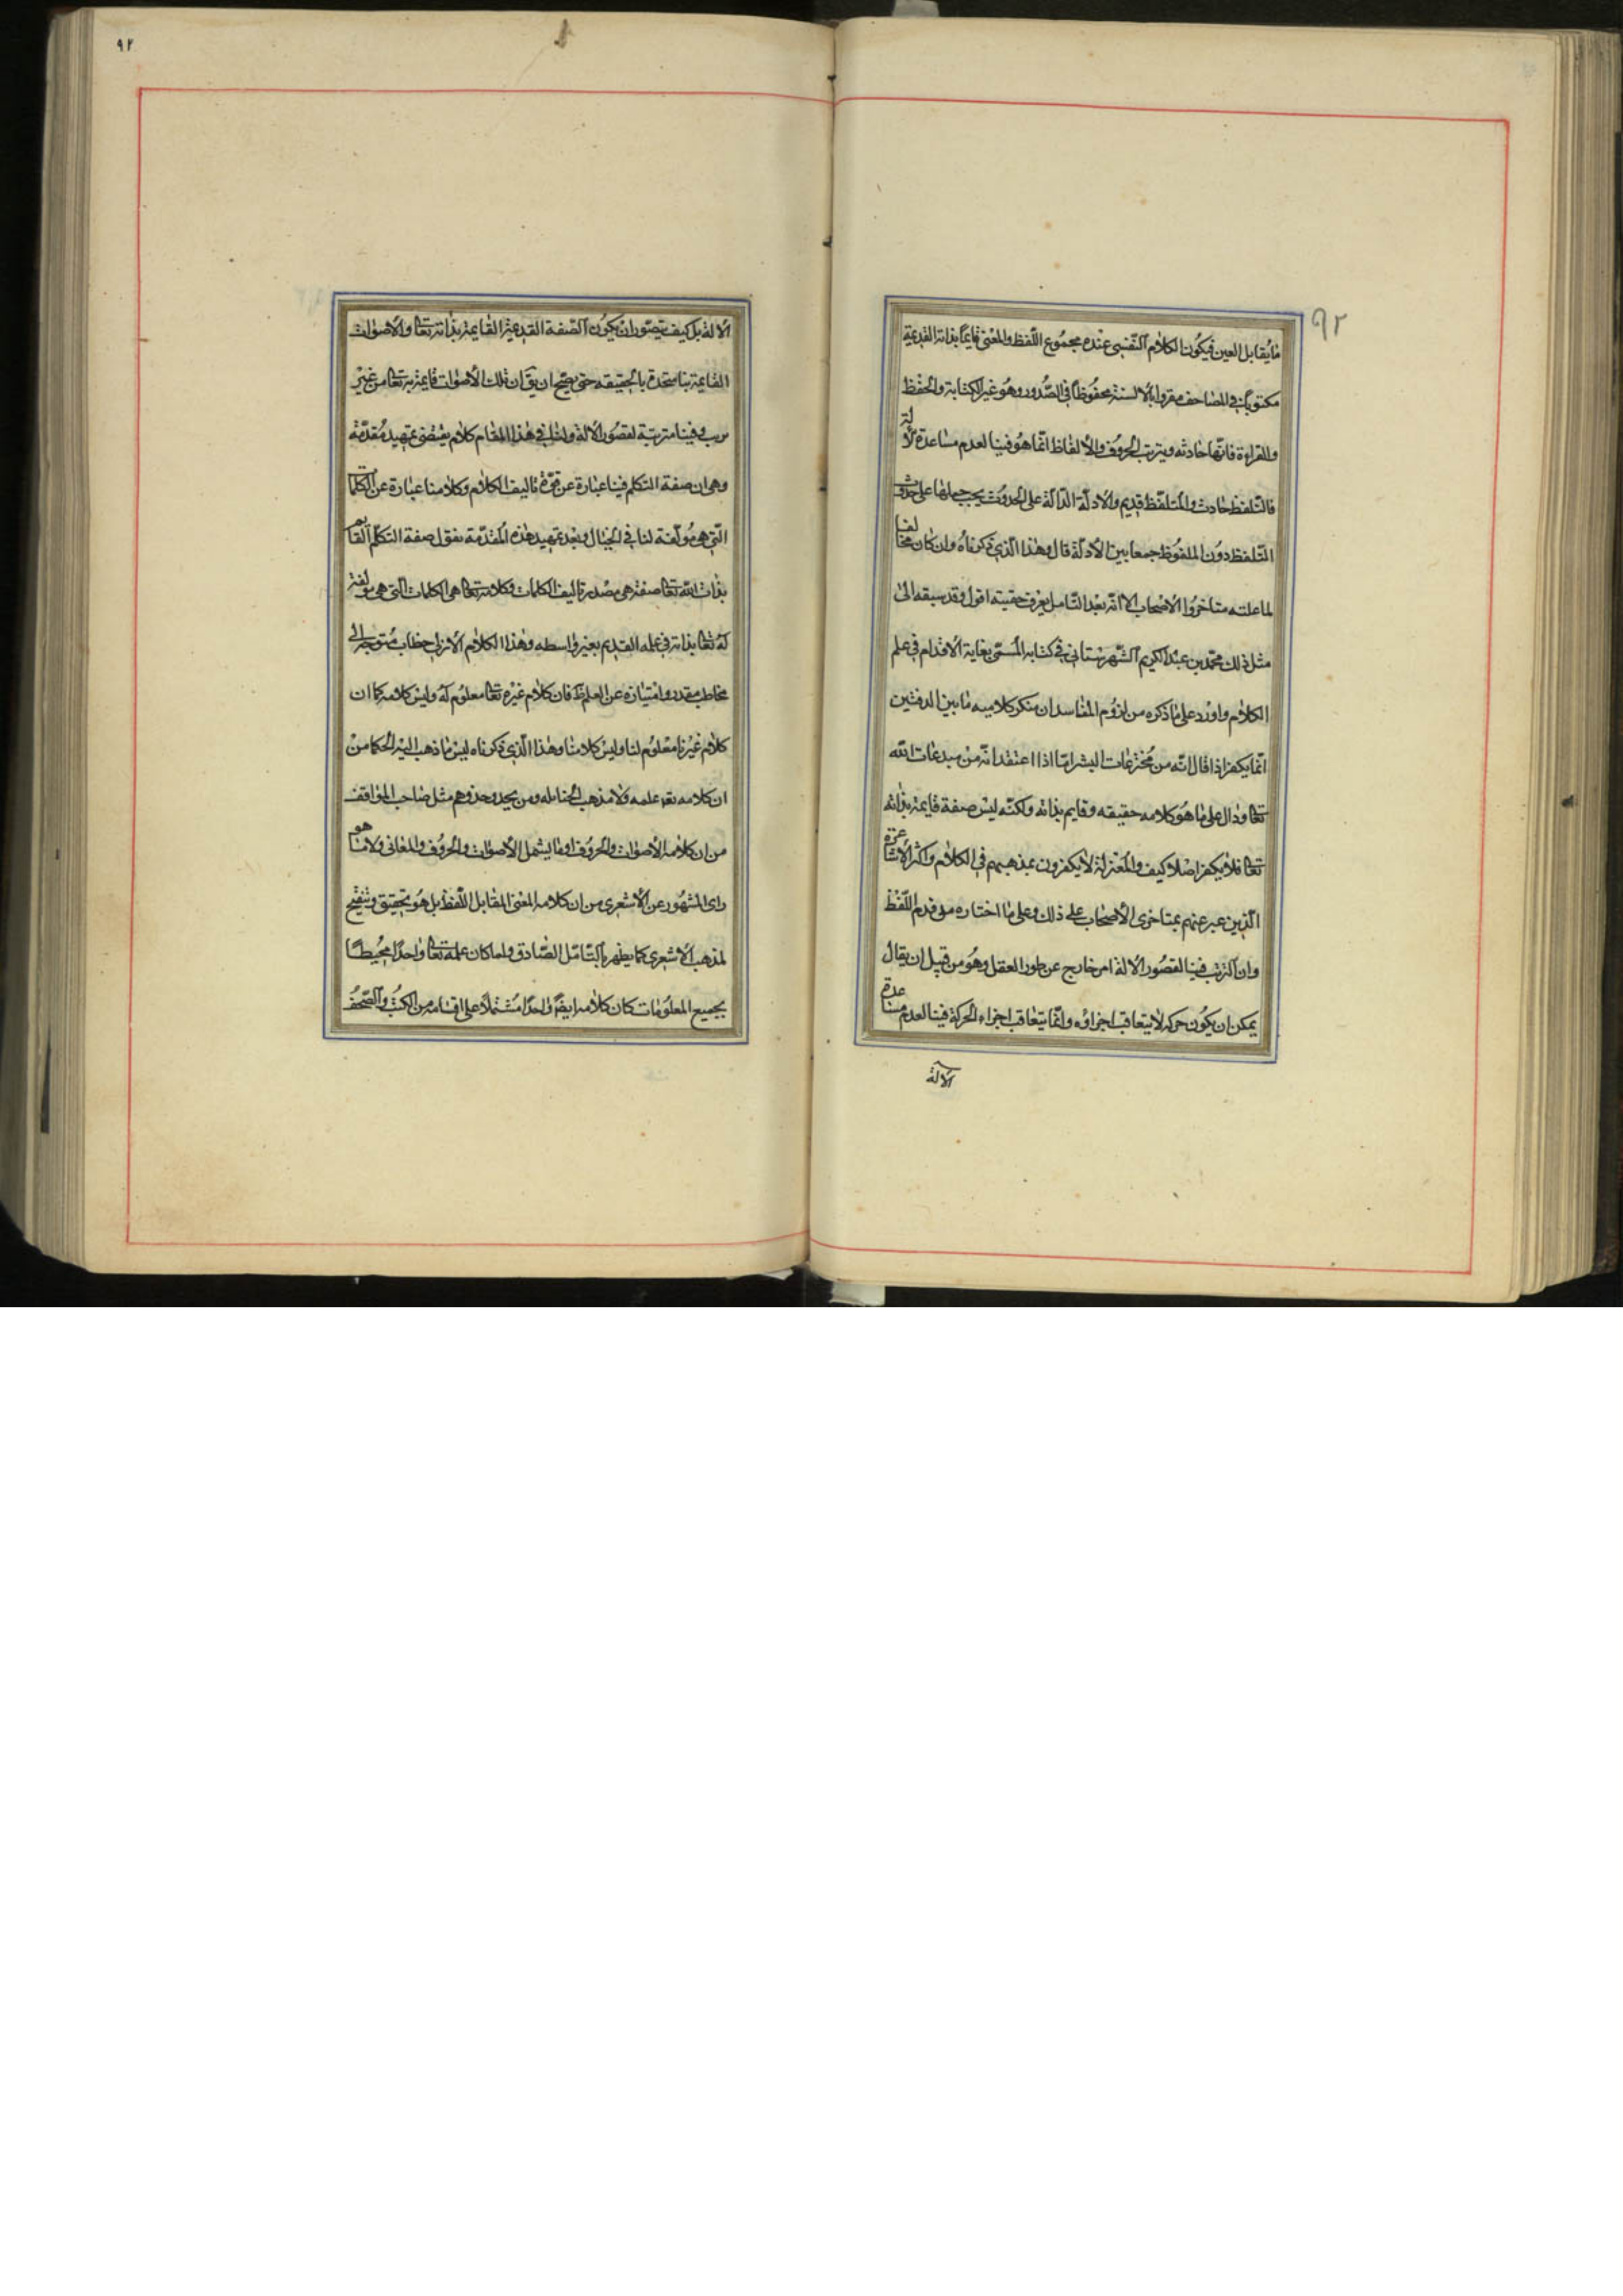 ٩٢
ما يُقابل العين فيكُون الكلام النّفسى عنده مجمُوع اللّفظ والمعْنى قايماً بذاته القديمة
مكتوباً في المصاحف مقروا بالالسنة محفُوظاً في الصُّدور وهُو غير الكتابة والحفظ
والقراءة فانّها حادثه ويترتب الحرُوف والالفاظ انّما هُو فينا لعدم مساعدة لالة
فالتّلفظ حادث والمتلفّظ قديم والادلّة الدّالة على الحدوث يجب حملها على حدُوث
التّلفظ دُون الملفُوظ جمعا بين الادلّة قال وهٰذا الّذي ذكرناه وان كان مخالفا
لما علته متاخرُوا الاصْحاب الا انّه بعْد التّامل يعْرف حقيته اقول وقد سبقه الىٰ
مثل ذلك محمّد بن عبْد الكريم الشّهرسْتاني في كتابه المُسمّى بغاية الاقدام في علم
الكلام واورْد على ما ذكره من لزوُم المفاسد ان منكر كلاميه ما بين الدفتين
انّما يكفر اذا قال انّه من مُخترعَات البشر امّا اذا اعتقد انّه منْ مبدعَات الله
تعا ودال على ما هُو كلامه حقيقه وقايم بذاته ولكنّه ليْس صفة قايمة بذاته
تعا فلا يكفر اصْلا كيف والمُعْتزلة لا يكفرون بمذهبهم في الكلام واكثر الاشاعرة
الّذين عبر عنهم بمتاخرى الأصحَاب على ذلك وعلى ما اختاره من قدم اللّفْظ
وان الترتب فينا لقصُور الالة امر خارج عن طور العقل وهُو من قبيل ان يقال
يمكن ان يكُون حركه لا يتعاقب اجزاؤه وانّما يتعاقب اجزاء الحركة فينا لعدم مساعدة
الالة
٩٢
الالة بل كيف يتصّور ان يكُون الصّفة القديمة القايمة بذاته تعا والأصوات
القايمة بنا متحدة بالحقيقه حتى يصّح ان يقَ ان تلك الأصوات قايمة به تعا من غيْر
ترتب وفينا مترتبة لقصُور الالة ولنا في هٰذا المقام كلام يقتضى تمهيد مُقدّمة
وهى ان صفة التكلم فينا عبارة عن قوّة تاليف الكلام وكلامنا عبارة عن الكلمات
الّتي هى مُولّفة لنا في الخيال وبعْد تمهيد هٰذه المُقدّمة نقول صفة التكلّم القايم
بذات الله تعا صفة هى مصْدر تاليف الكلمات وكلامه تعا هى الكلمات الّتي هى مولفة
لهُ تعا بذاته في علمه القديم بغير واسطه وهٰذا الكلام الازلي خطاب مُتوجه الى
مخاطب مقدر وامتيازه عن العلم ظ فان كلام غيْره تعا معلوُم لهُ وليْس كلامه كما ان
كلام غيْرنا معْلوُم لنا وليْس كلامنا وهٰذا الّذي ذكرناه ليْس ما ذهب اليْه الحُكما منْ
ان كلامه تعا علمه ولا مذهب الحنابله ومن يحذو حذوهم مثل صاحب المواقف
من ان كلامه الأصوات والحرُوف او ما يشمل الأصوات والحرُوف والمعانى ولا ما هو
راى المشهُور عن الاشعرى من ان كلامه المعْنى المقابل اللّفظ بل هُو تحقيق وتنقيح
لمذهب الاشعرى كما يظهر بالتّامّل الصّادق ولما كان علمه تعا واحدًا محُيطًا
بجميع المعلوُمات كان كلامه ايضًا واحدًا مُشتملاً على اقسامه من الكتُب والصّحُف